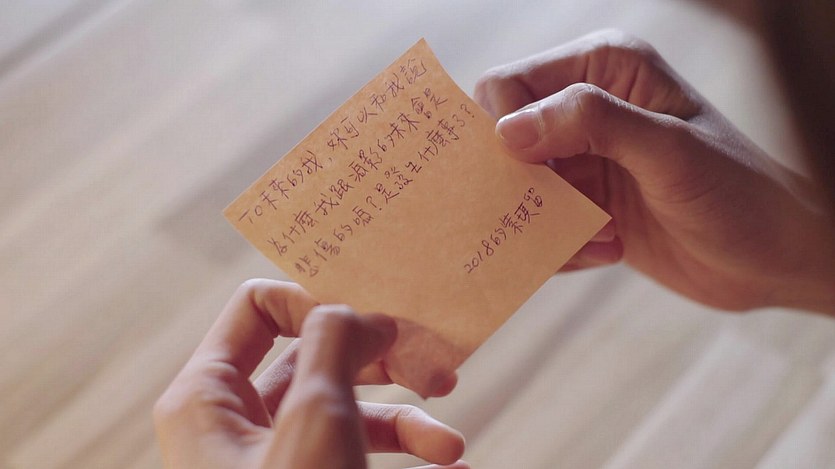 To未來的我,妳可以和我說
為什麼我跟源彩的未來會是
悲傷的嗎?是發生什麼事了?
2018的紫琪留